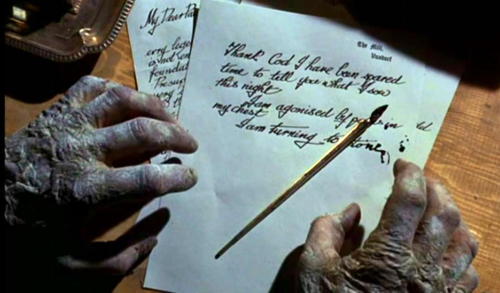 My Dear
is not
The Mill,
Vandorf
Thank God I have been spared
time to tell you what I saw
this night
I am agonised by in
my chest
I am turning to stone